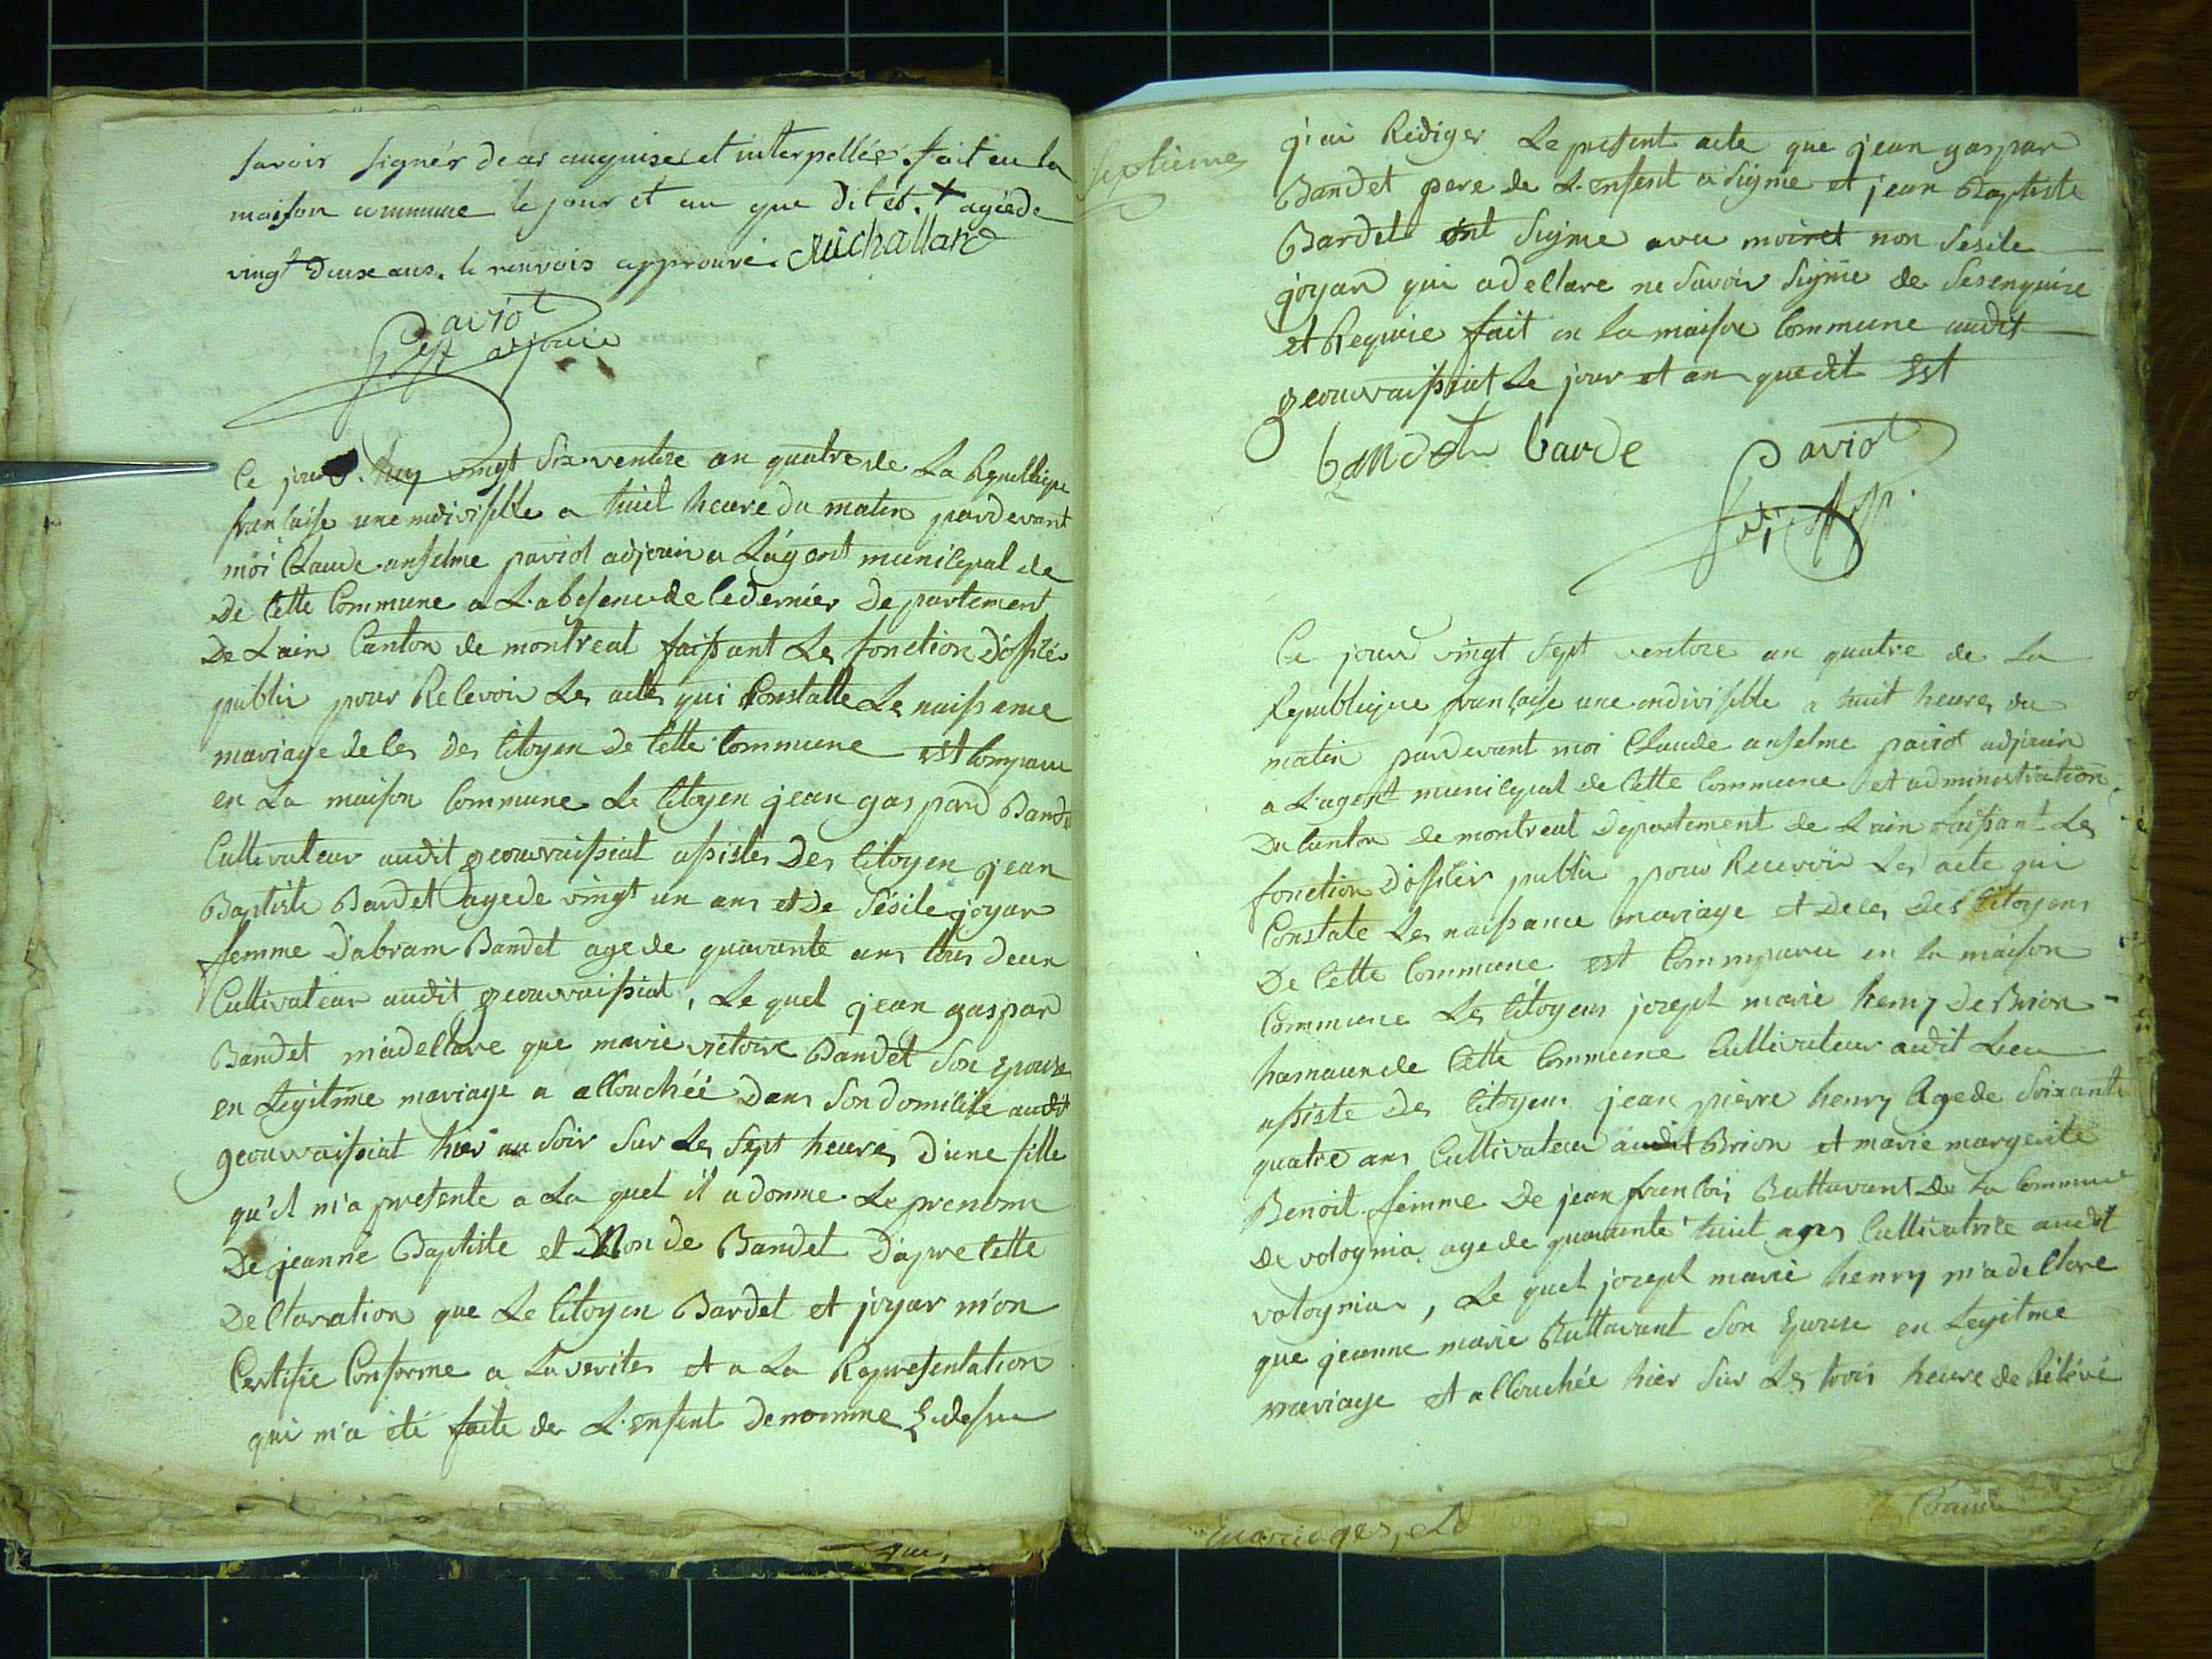 savoir signér de ce enquise et interpellée. fait en la
maison commune le jour et an que dit est. + agée de
vingt deux ans. le renvois approuvé. Michalland
Paviot
adjoint
Ce jour huy vingt Six ventose an quatre de La Republique
francaise une indivisible a huit heure du matin pardevant
moi Claude anselme paviot adjoin a L'agent municipal de
De Cette Commune a L'absence de ce dernier Departement
De L'ain Canton de montreal faissant Les fonction D'officier
public pour Recevoir Les actes qui Constatte Le naissance
mariage deces des Citoyen De Cette Commune est Comparu
en La maison Commune Le Citoyen jean gaspard Band
Cultivateur audit geouvraissiat assistes Des Citoyen jean
Baptiste Bardet age de vingt un ans et De Sésile joyar
femme D'abram Bandet age de quarante ans tous deux
Cultivateur audit geouvraissiat, Le quel jean gaspar
Bandet m'a declare que marie victoire Bandet Son Epouse
en Legitime mariage a accouchée Dans Son domicile audit
geouvraissiat hier au Soir Sur Les Sept heures D'une fille
qu'il m'a presente a La quel il a donne Le prenom
De jeanne Baptiste et Non de Bandet D'apre Cette
Declaration que Le Citoyen Bardet et joyar m'on
Certifie Conforme a La verites et a La Representation
qui m'a été faite de L'enfent denomme
que,
septieme
j'ai Rediger Le present acte que jean gaspar
Bandet pere de L'enfent a Signe et jean Baptiste
Bardet ont Signe avec moi et non Sesile
joyard qui a declare ne Savoir Signe de Ses enquise
et Requise fait en La maison Commune audit
geouvraissiat Le jour et an que dit Est
bandet barde Paviot
Ce jour vingt Sept ventose an quatre de La
Republique francaise une indivisible a huit heures du
matin pardevant moi Claude anselme paviot adjoin
a L'agent municipal de Cette Commune et administration
Du Canton de montreal Departement de L'ain faissant Les
fonction D'officier public pour Recevoir Les acte qui
Constate Les naissance mariage et Deces Des Citoyens
De Cette Commune est Commparu en la maison
Commune Le Citoyen joseph marie henry De Brion
hamaun de Cette Commune Cultivateur audit Lieu
assiste Des Citoyens jean pierre henry Age de Soixante
quatre ans Cultivateur audit Brion et marie margerite
Benoit femme De jean francois Buttavant De La Commune
De volognia age de quarante huit ages Cultivatrice audit
volognia, Le quel joseph marie henry m'a declare
que jeanne marie Buttavant Son Epouse en Legitme
mariage et accouchée hier Sur Les trois heure de Rélévé
mariages, et